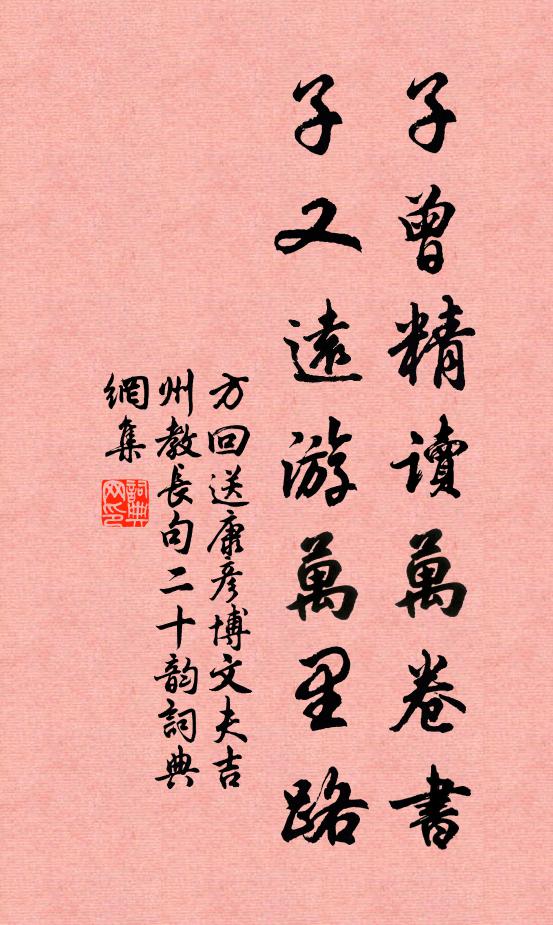 子曾精讀萬卷書
子又遠游萬里路
方回送康彥博文夫吉
州教長句二十韵詞典
網集
詞典網印